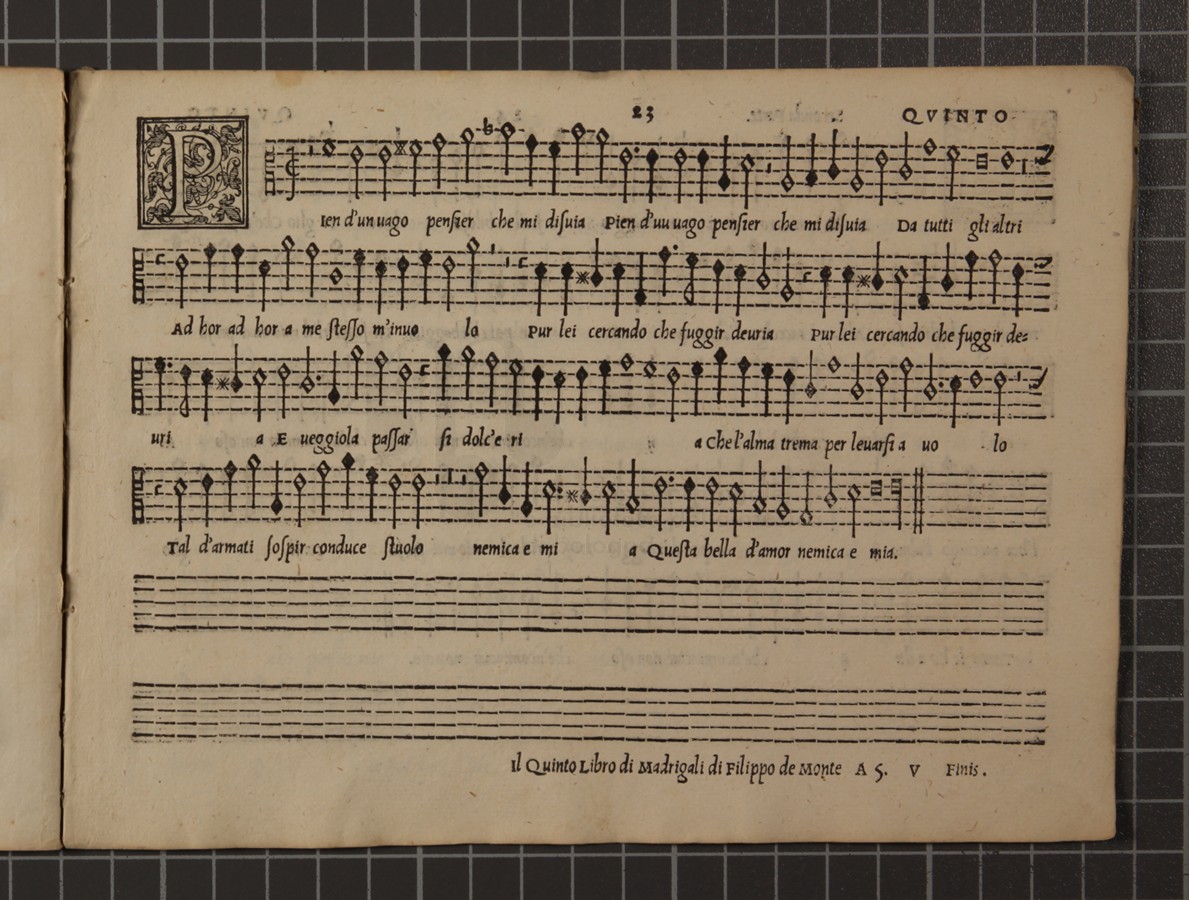 23 QVINTO
PIen d'un uago penſier che mi diſuia Pien d'uu uago penſier che mi diſuia Da tutti gli altri
Ad hor ad hor a me ſteſſo m'inuo lo Pur lei cercando che fuggir deuria Pur lei cercando che fuggir de=
uri a E ueggiola paſſar ſi dolc'e ri a Che l'alma trema per leuarſi a uo lo
Tal d'armati ſoſpir conduce ſtuolo nemica e mi a Queſta bella d'amor nemica e mia.
Il Quinto Libro di Madrigali di Filippo de Monte A 5. V Finis.